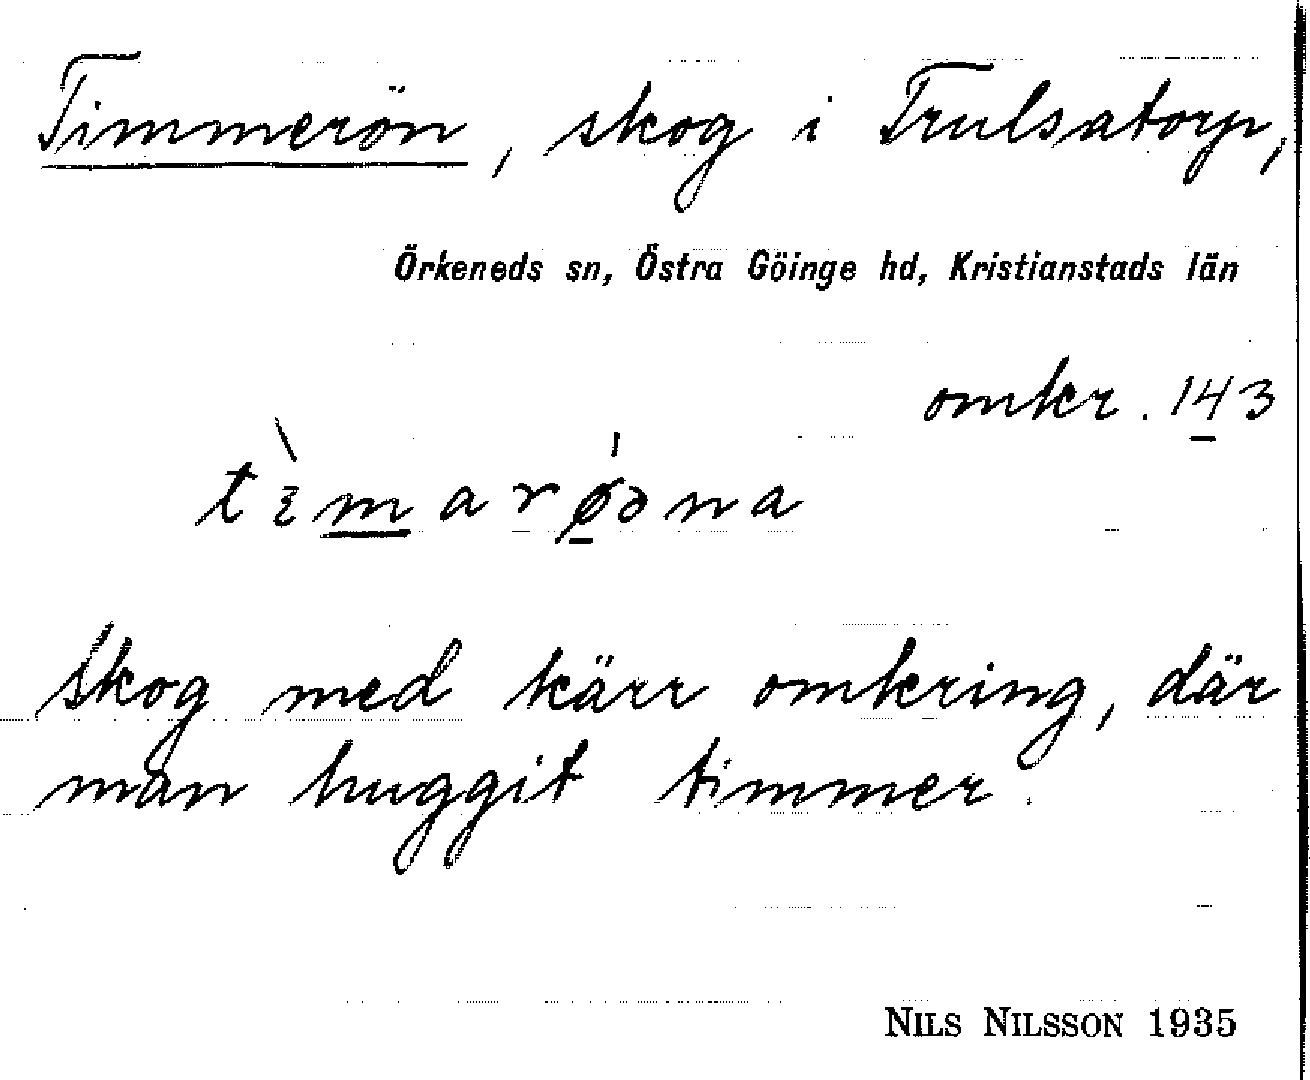 Timmerön, skog i Trulsatorp,
Örkeneds sn, Östra Göinge hd, Kristianstads län
omkr. 143
Skog med kärr omkring, där
man huggit timmer.
NILS NILSSON 1935